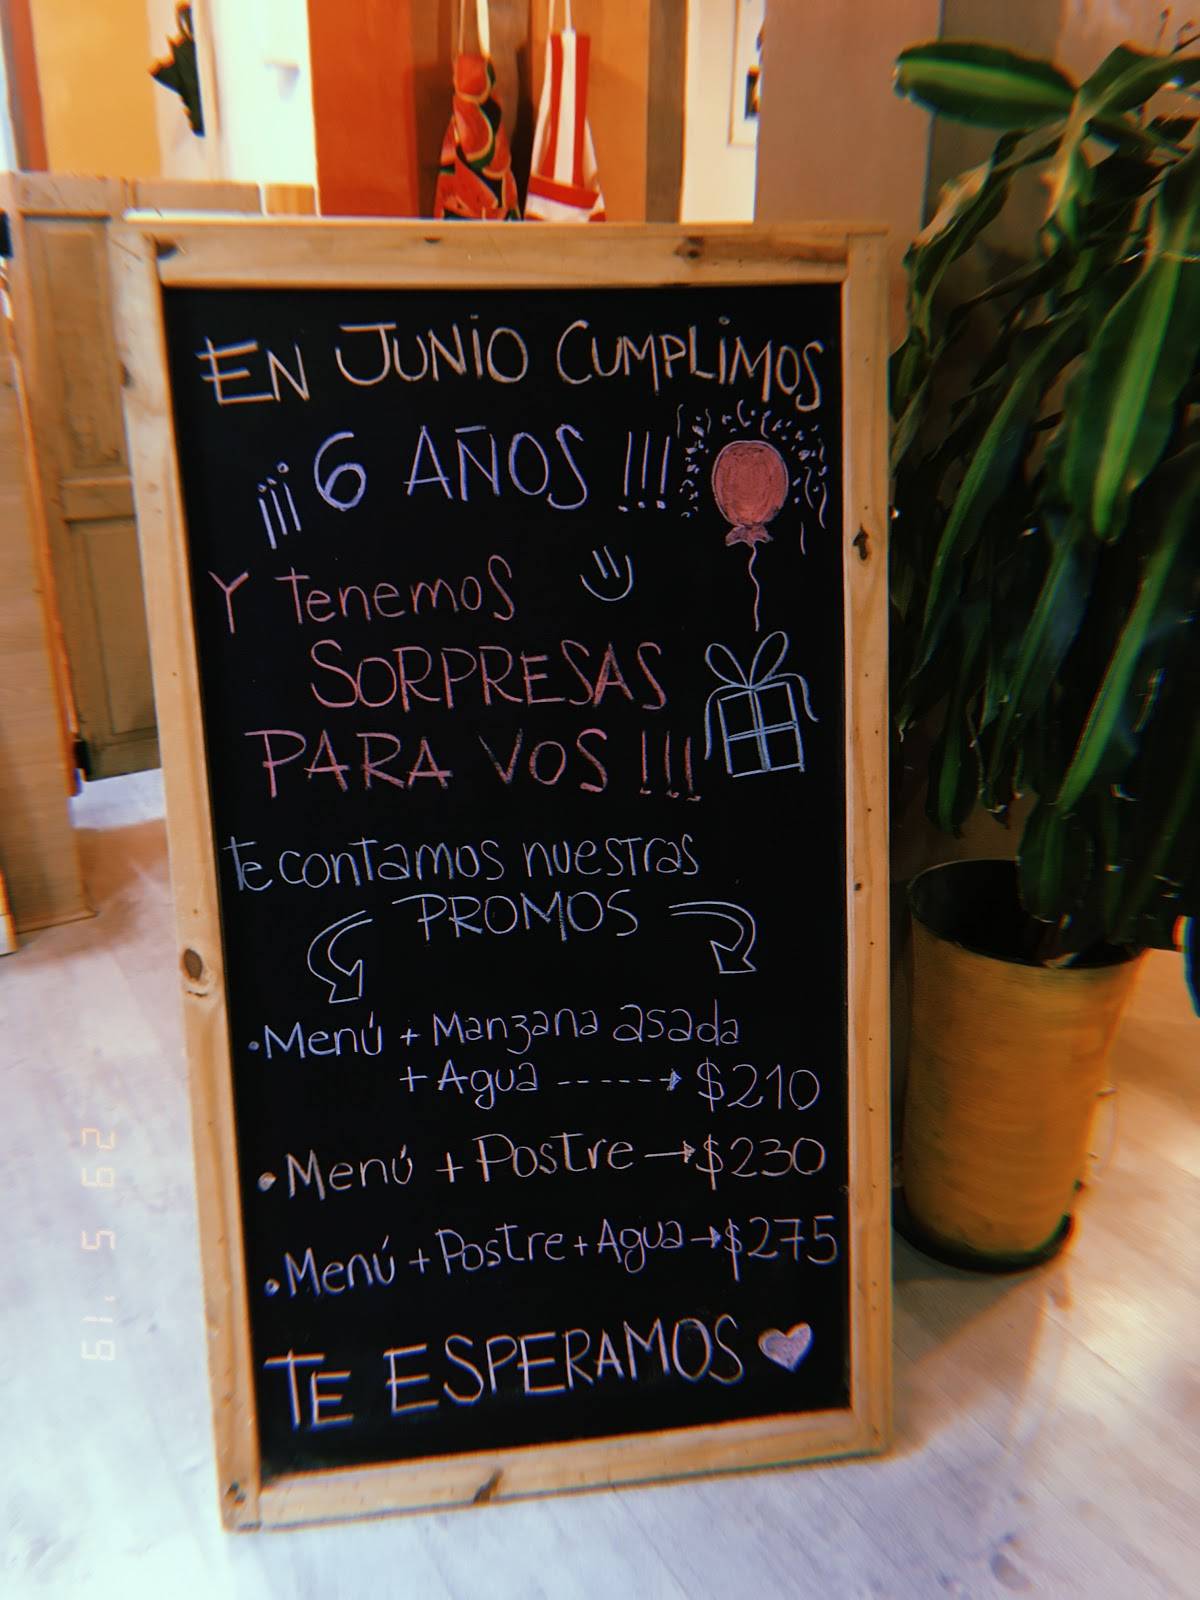 EN JUNIO CUMPLIMOS
¡¡¡6 AÑOS!!!
Y Tenemos
SORPRESAS
PARA VOS!!!
Te contamos nuestras
PROMOS
• Menú + Manzana asada
+ Agua ------→ $210
• Menú + Postre → $230
• Menú + Postre + Agua → $275
TE ESPERAMOS
29 5 '19